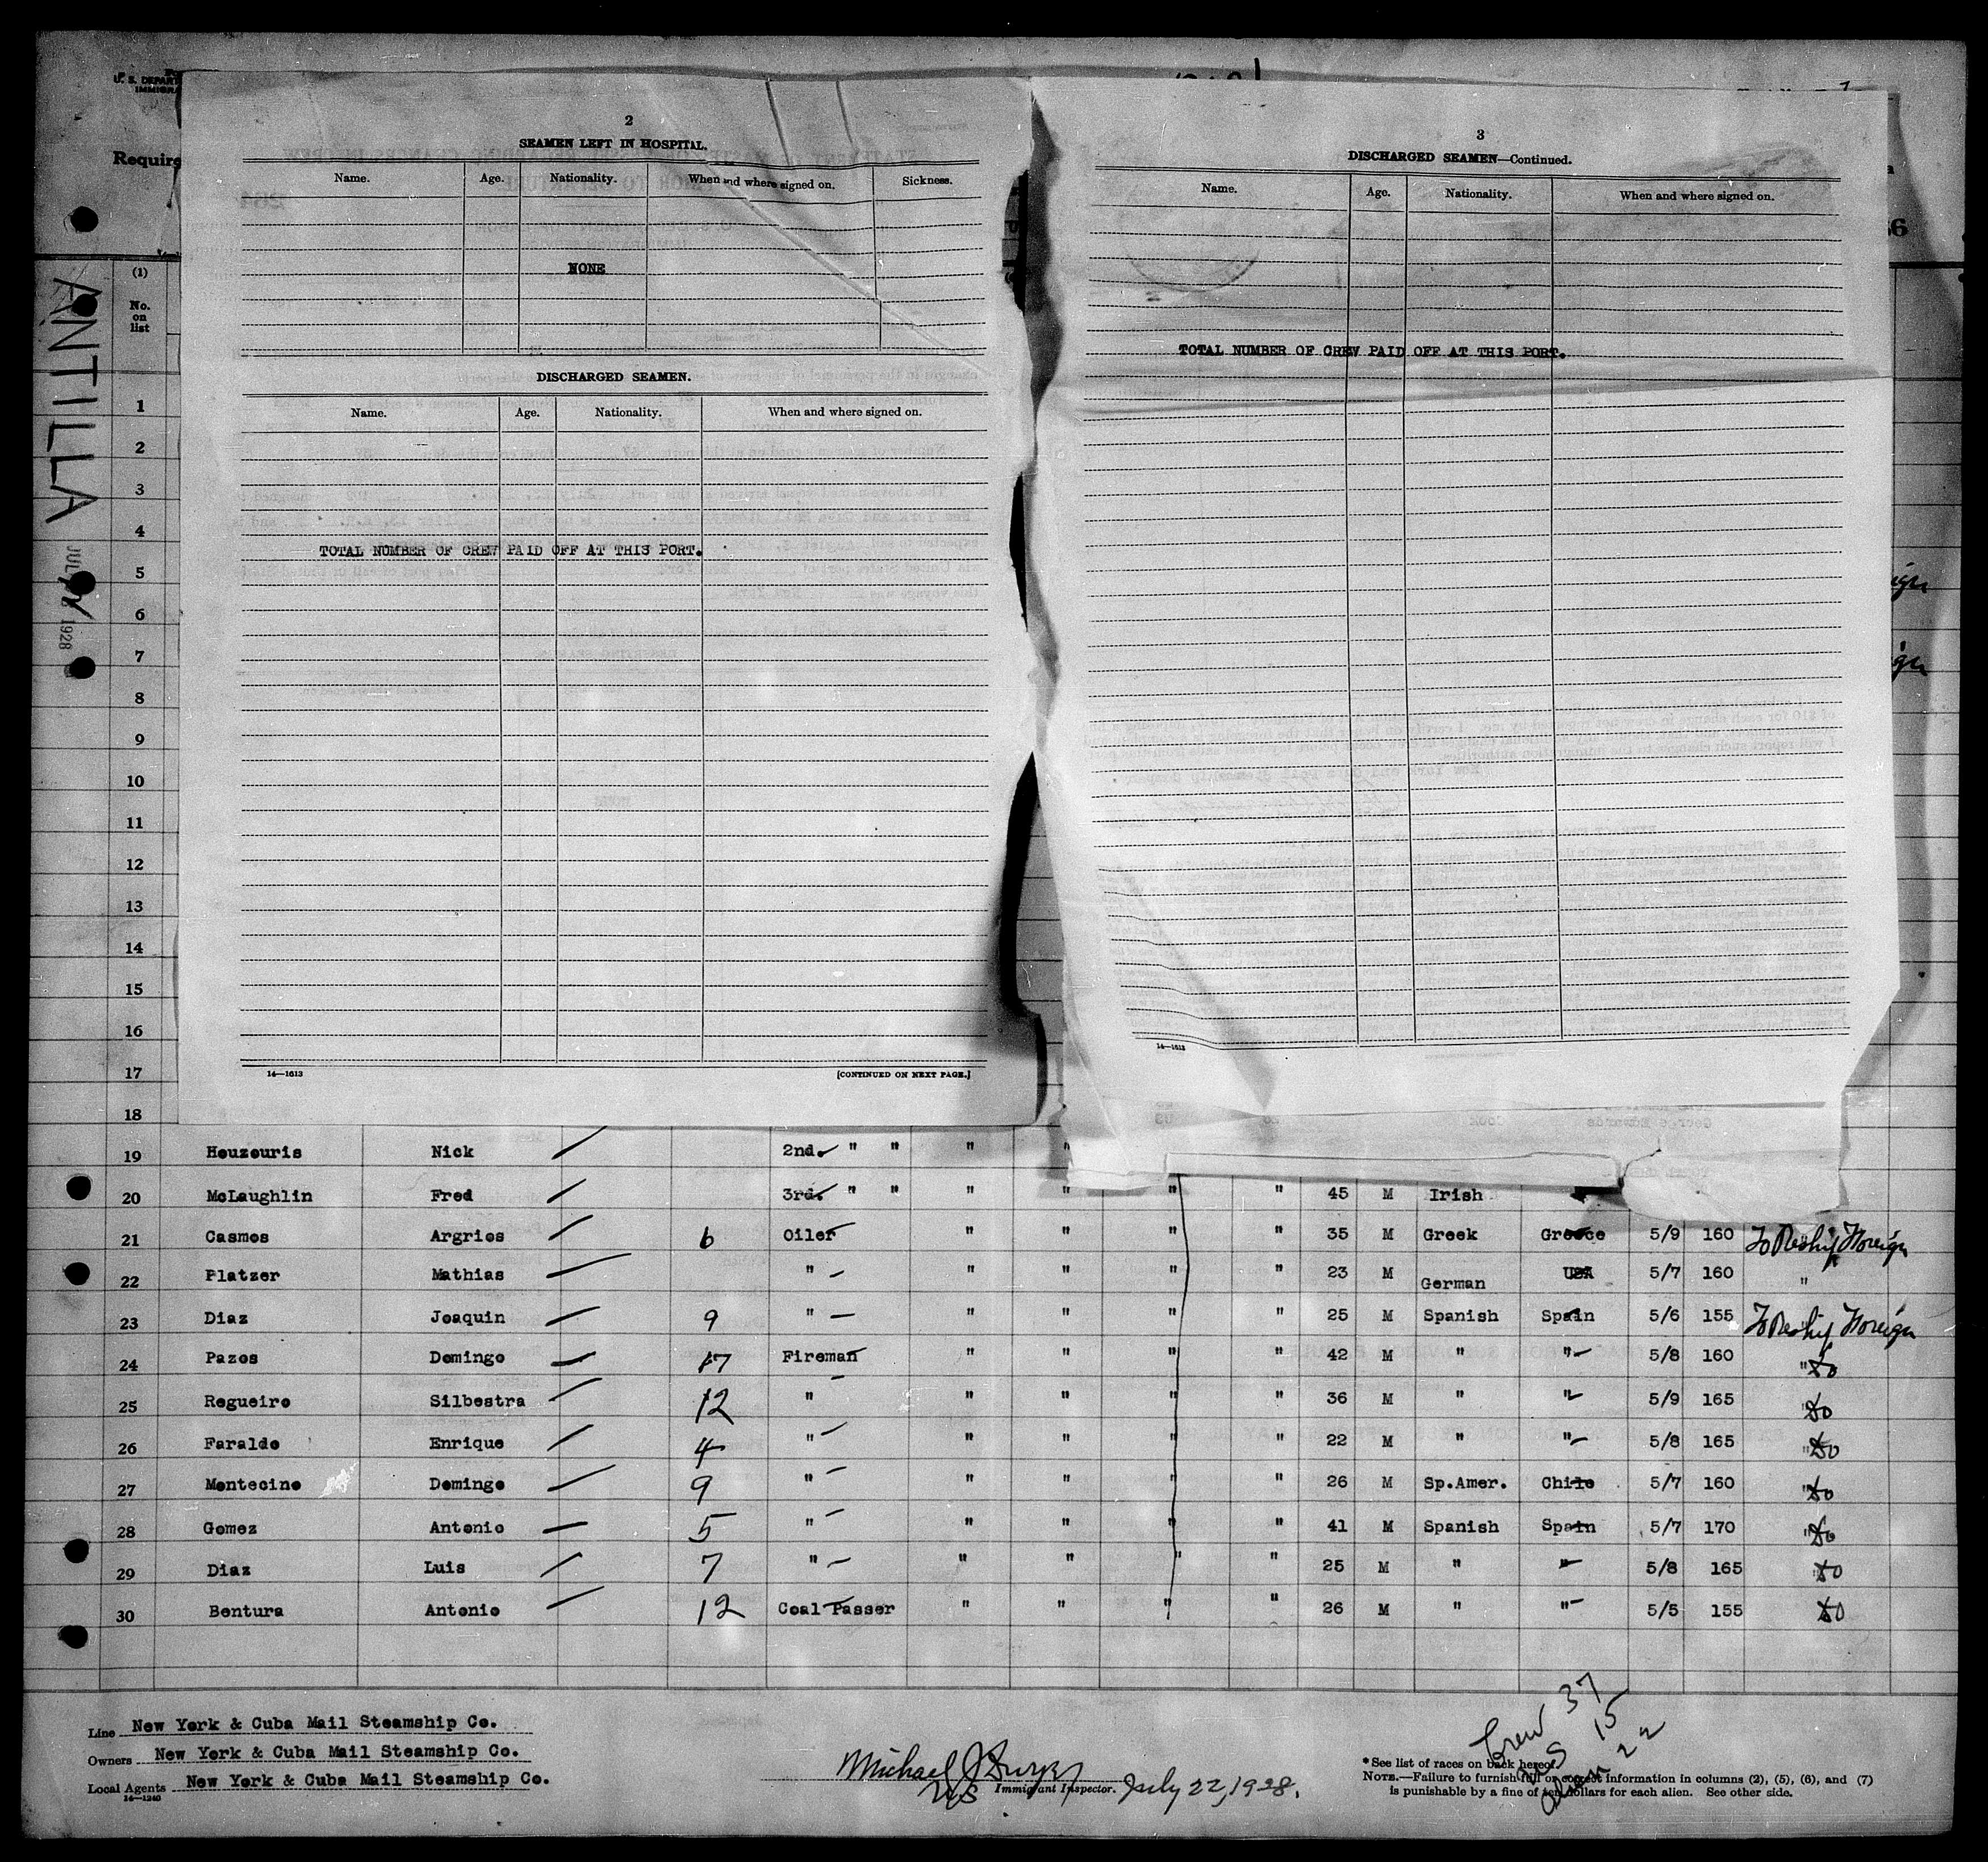 U. S. DEPART
IMMIGRA
Require
ANTILLA
JUL 1928
(1)
No.
on
list
1
2
3
4
5
6
7
8
9
10
11
12
13
14
15
16
17
18
2
SEAMEN LEFT IN HOSPITAL.
Name. Age. Nationality. When and where signed on. Sickness.
NONE
DISCHARGED SEAMEN.
Name. Age. Nationality. When and where signed on.
TOTAL NUMBER OF CREW PAID OFF AT THIS PORT.
14—1613 [CONTINUED ON NEXT PAGE.]
3
DISCHARGED SEAMEN—Continued.
Name. Age. Nationality. When and where signed on.
TOTAL NUMBER OF CREW PAID OFF AT THIS PORT.
14—1613
19 Houzouris Nick 2nd. " " " "
20 McLaughlin Fred 3rd. " " " " " " 45 M Irish
21 Casmos Argrios 6 Oiler " " " " 35 M Greek Greece 5/9 160 To Reship Foreign
22 Platzer Mathias " " " " " 23 M German USA 5/7 160 "
23 Diaz Joaquin 9 " " " " " 25 M Spanish Spain 5/6 155 To Reship Foreign
24 Pazos Domingo 17 Fireman " " " " 42 M " " 5/8 160 " do
25 Regueiro Silbestra 12 " " " " " 36 M " " 5/9 165 " do
26 Faraldo Enrique 4 " " " " " 22 M " " 5/8 165 " do
27 Montecino Domingo 9 " " " " " 26 M Sp.Amer. Chile 5/7 160 " do
28 Gomez Antonio 5 " " " " " 41 M Spanish Spain 5/7 170 " do
29 Diaz Luis 7 " " " " " 25 M " " 5/8 165 do
30 Bentura Antonio 12 Coal Passer " " " " 26 M " " 5/5 155 do
Line New York & Cuba Mail Steamship Co.
Owners New York & Cuba Mail Steamship Co.
Local Agents New York & Cuba Mail Steamship Co.
14—1240
Michael J
Immigrant Inspector. July 22, 1928.
Crew 37
US 15
Alien 22
* See list of races on back hereof.
NOTE.—Failure to furnish full or correct information in columns (2), (5), (6), and (7)
is punishable by a fine of ten dollars for each alien. See other side.